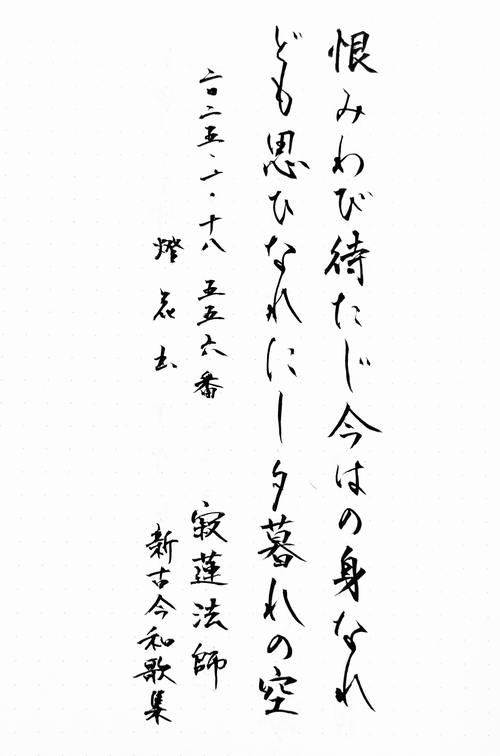 恨みわび待たじ今はの身なれ
ども思ひなれにし夕暮れの空
二〇二五・二・十八 五五六番
寂蓮法師
燈花
新古今和歌集